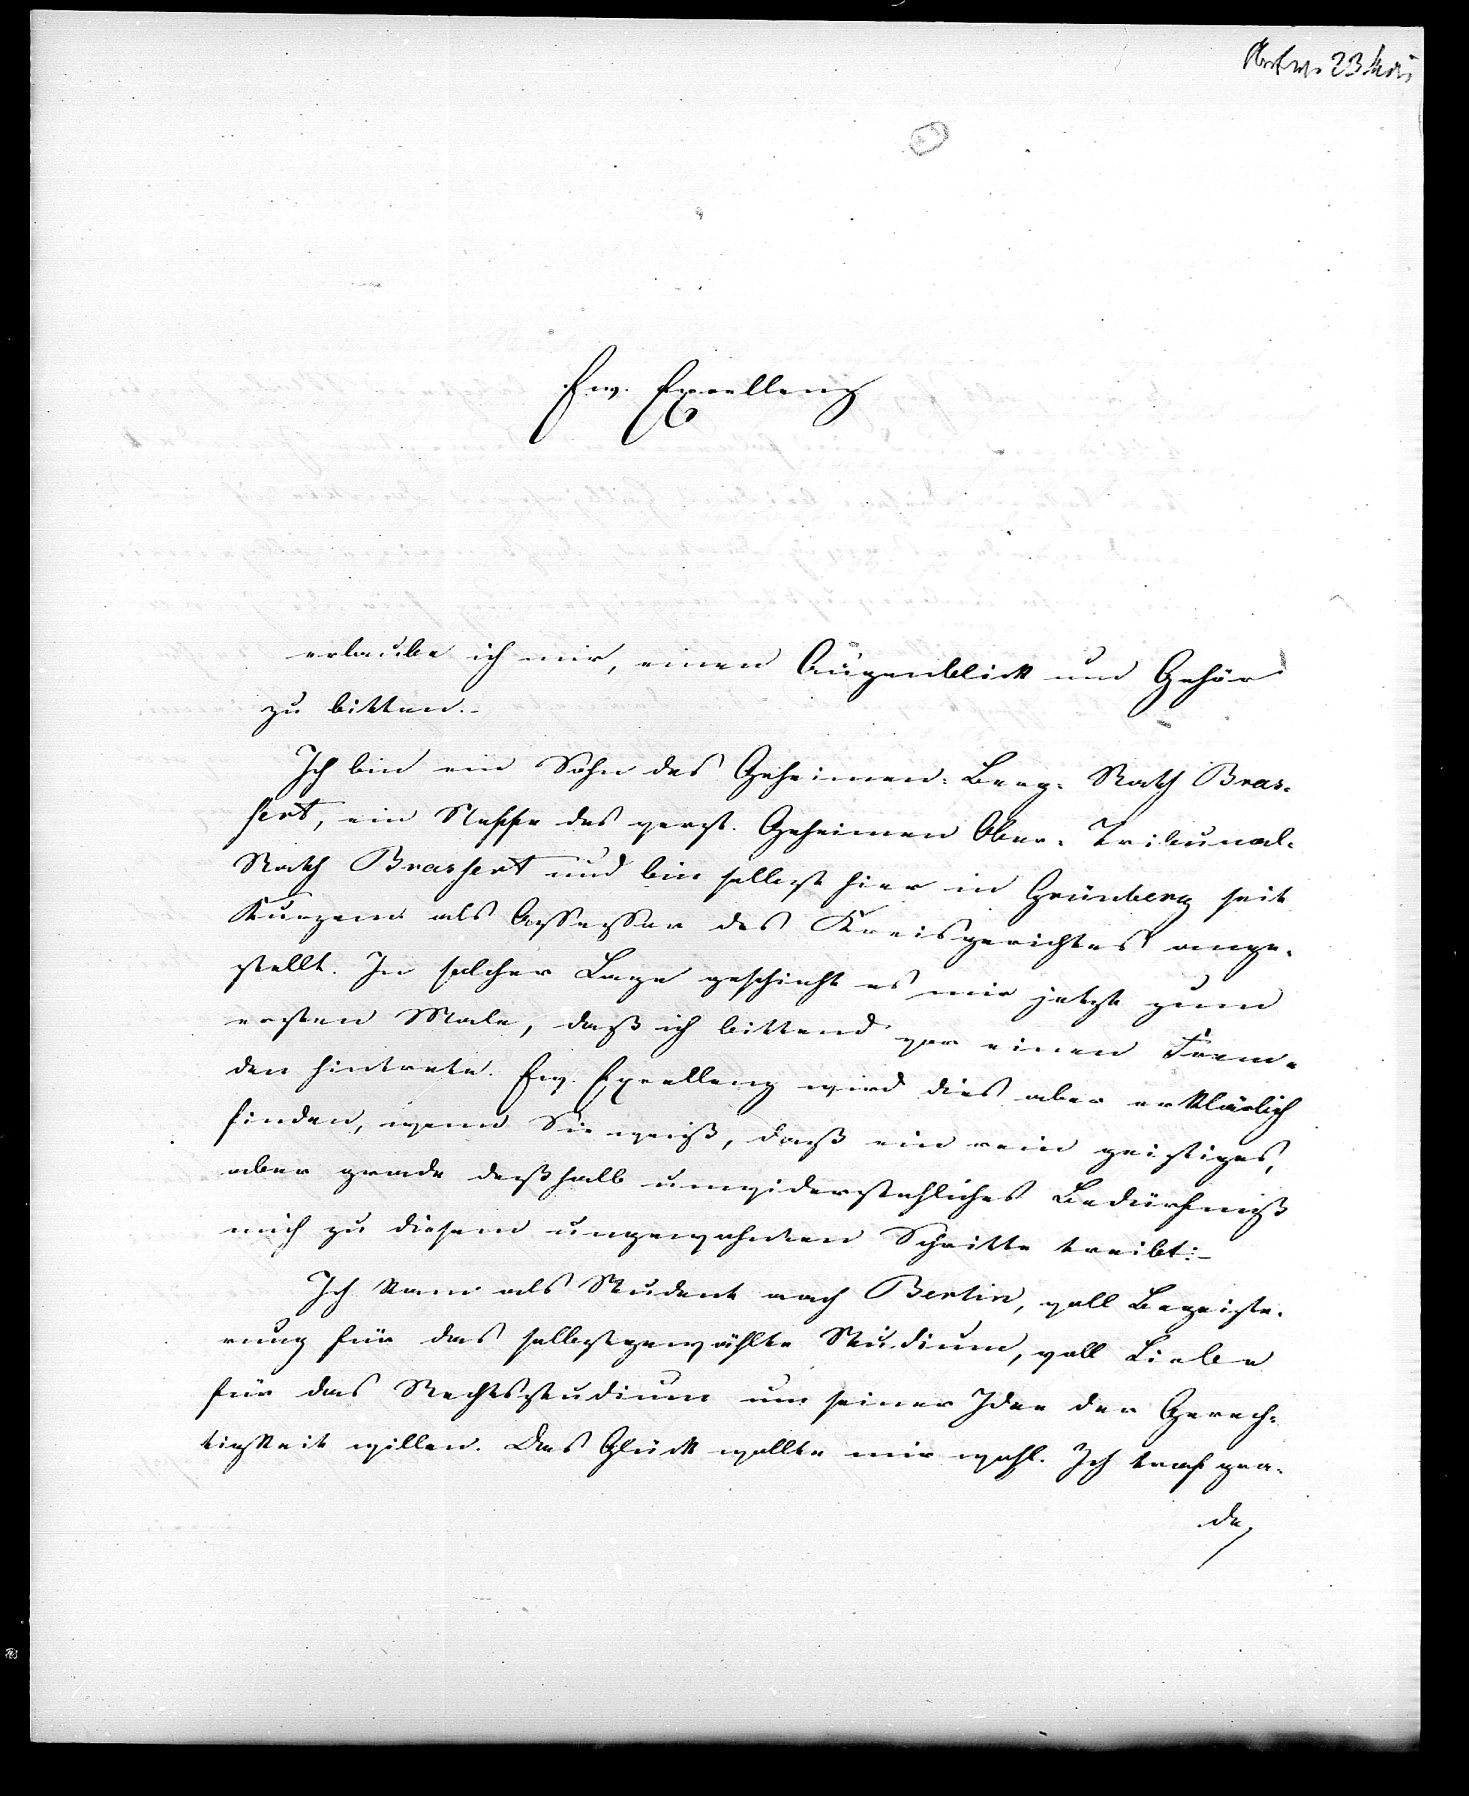 Antw. 23 Mai
Ew. Excellenz
erlaube ich mir, einen Augenblick um Gehör
zu bitten.-
Ich bin ein Sohn des Geheimen-Berg-Rath Bras-
sert, ein Neffe des verst. Geheimen Ober-Tribunal-
Rath Brassert und bin selbst hier in Grünberg seit
Kurzem als Assessor des Kreisgerichtes ange-
stellt. In solcher Lage geschieht es mir jetzt zum
ersten Male, daß ich bittend vor einen Frem-
den hintrete. Ew. Excellenz wird dies aber erklärlich
finden, wenn Sie weiß, daß ein rein geistiges,
aber grade deßhalb unwiderstehliches Bedürfniß
mich zu diesem ungewohnten Schritte treibt:-
Ich kam als Student nach Berlin, voll Begeiste-
rung für das selbstgewählte Studium, voll Liebe
für das Rechtsstudium um seiner Idee der Gerech-
tigkeit willen. Das Glück wollte mir wohl. Ich traf gra-
de,